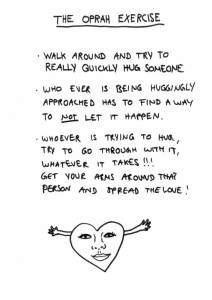 THE OPRAH EXERCISE
· WALK AROUND AND TRY TO
REALLY QUICKLY HUG SOMEONE
· WHO EVER IS BEING HUGGINGLY
APPROACHED HAS TO FIND A WAY
TO NOT LET IT HAPPEN.
· WHOEVER IS TRYING TO HUG,
TRY TO GO THROUGH WITH IT,
WHATEVER IT TAKES!!!
GET YOUR ARMS AROUND THAT
PERSON AND SPREAD THE LOVE!